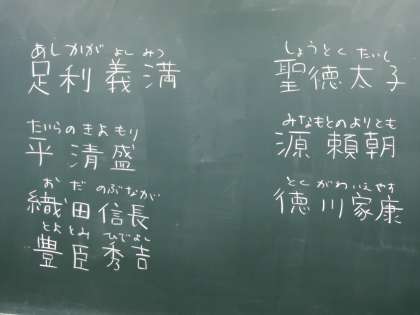 あしかが よしみつ
足利義満
たいらのきよもり
平清盛
おだ のぶなが
織田信長
とよとみ ひでよし
豊臣秀吉
しょうとく たいし
聖徳太子
みなもとのよりとも
源頼朝
とくがわいえやす
徳川家康